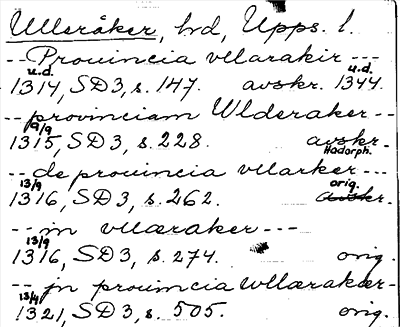 Ulleråker, hrd, Upps. l.
-- Prouincia vllarakir ---
u.d. u.d.
1314, SD3, s. 147. avskr. 1344.
-- provinciam Wlderaker --
9/9
1315, SD3, s. 228. avskr.
Hadorph.
-- de prouincia vllarker ---
13/9 orig.
1316, SD3, s. 262. avskr.
-- in vllæraker ---
13/9
1316, SD3, s. 274. orig.
-- jn prouincia wllærakær-
13/4
1321, SD3, s. 505. orig.